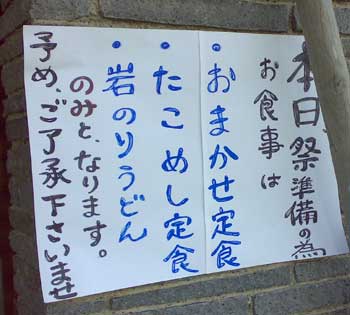 本日祭準備の為
お食事は
・おまかせ定食
・たこめし定食
・岩のりうどん
のみと、なります。
予め、ご了承下さいませ